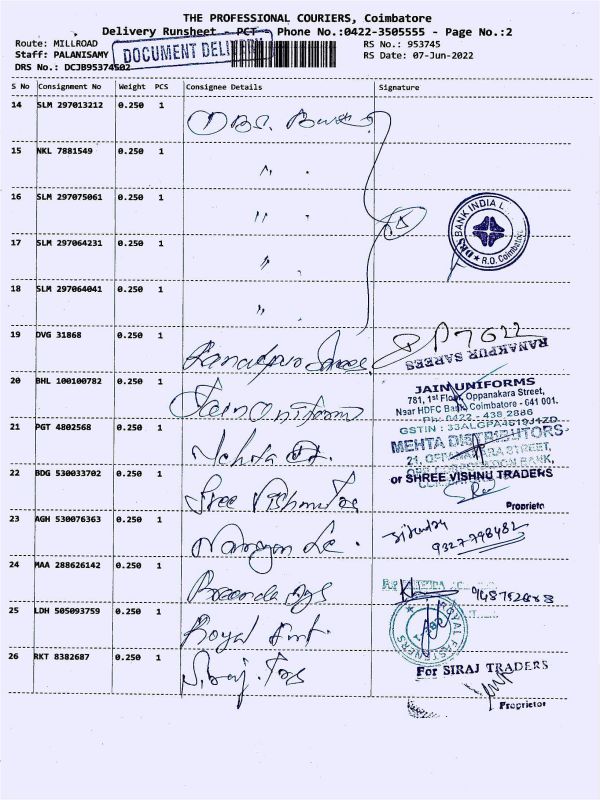 THE PROFESSIONAL COURIERS, Coimbatore
Delivery Runsheet - PCT - Phone No.:0422-3505555 - Page No.:2
Route: MILLROAD
RS No.: 953745
Staff: PALANISAMY
DOCUMENT DELI
RS Date: 07-Jun-2022
DRS No.: DCJB95374502
S No Consignment No Weight PCS Consignee Details Signature
14 SLM 297013212 0.250 1
15 NKL 7881549 0.250 1 "
16 SLM 297075061 0.250 1 "
DBS BANK INDIA L
R.O. Coimbatore
17 SLM 297064231 0.250 1 "
18 SLM 297064041 0.250 1 "
19 DVG 31868 0.250 1 Ranakpur Sarees
RANAKPUR SAREES
20 BHL 100100782 0.250 1 Jain Uniform
JAIN UNIFORMS
781, 1st Floor, Oppanakara Street,
Near HDFC Bank Coimbatore - 641 001.
Ph: 0422 - 438 2886
21 PGT 4802568 0.250 1 Mehta
MEHTA DISTRIBUTORS
22 BDG 530033702 0.250 1 Sree Vishnu Tas
or SHREE VISHNU TRADERS
Proprieto
23 AGH 530076363 0.250 1 Narayan
Jitendra
9327798482
24 MAA 288626142 0.250 1
25 LDH 505093759 0.250 1 Royal
ROYAL FASTENERS
26 RKT 8382687 0.250 1 Siraj. Tas
For SIRAJ TRADERS
Proprietor